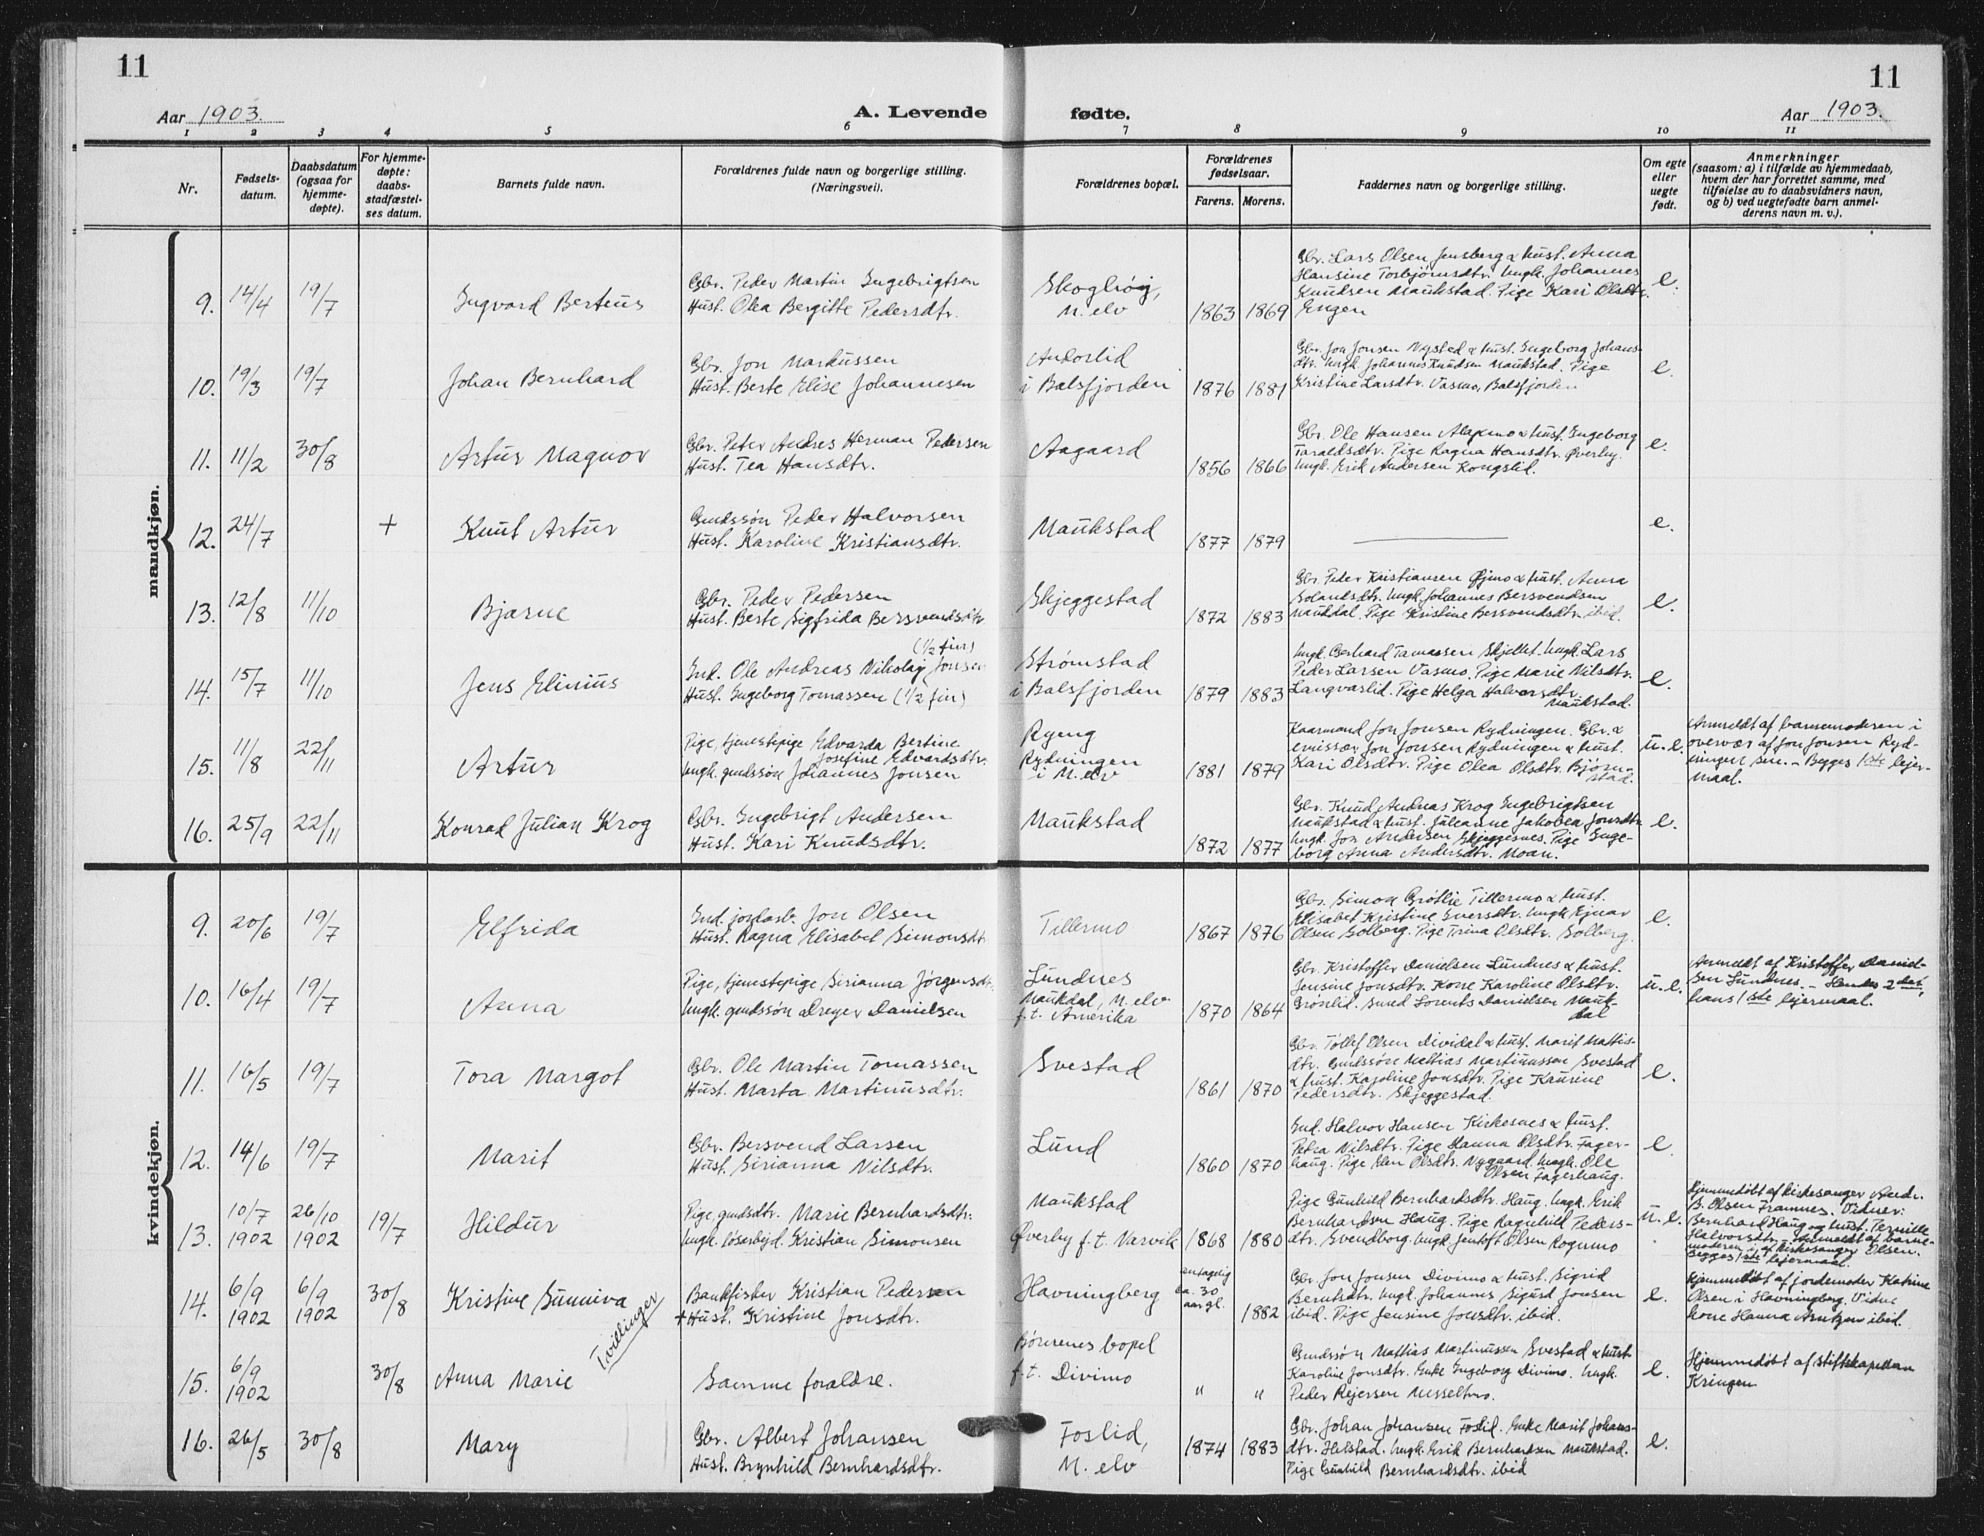 11
11
Aar 1903.
A. Levende fødte.
Aar 1903.
1 2 3 4 5 6 7 8 9 10 11
Nr.
Fødsels-
datum.
Daabsdatum
(ogsaa for
hjemme-
døpte).
For hjemme-
døpte:
daabs-
stadfæstel-
ses datum.
Barnets fulde navn.
Forældrenes fulde navn og borgerlige stilling.
(Næringsvei).
Forældrenes bopæl.
Forældrenes
fødselsaar.
Farens. Morens.
Faddernes navn og borgerlige stilling.
Om egte
eller
uegte
født.
Anmerkninger
(saasom: a) i tilfælde av hjemmedaab,
hvem der har forrettet samme, med
tilføielse av to daabsvidners navn,
og b) ved uegtefødte barn anmel-
derens navn m. v.).
mandkjøn.
9. 14/4 19/7 Ingvard Berteus
Gbr. Peder Martin Ingebrigtsen
Hust. Olea Bergitte Pedersdtr.
Skoglröig,
M. elv
1863 1869
Gbr. Lars Olsen Jensberg & hust. Anna
Hansine Torbjörnsdtr. Ungk. Johannes
Knudsen Maukstad. Pige Kari Olsdtr.
Engen
e.
10. 19/3 19/7 Johan Bernhard
Gbr. Jon Markussen
Hust. Berte Elise Johannesen
Andorlid
i Balsfjorden
1876 1881
Gbr. Jon Jonsen Nysted & hust. Ingeborg Johans-
dtr. Ungk. Johannes Knudsen Maukstad. Pige
Kristine Larsdtr. Vasmo, Balsfjorden
e.
11. 11/2 30/8 Artur Magnor
Gbr. Peter Andres Herman Pedersen
Hust. Tea Hansdtr.
Aagaard
1856 1866
Gbr. Ole Hansen Alapmo & hust. Ingeborg
Taraldsdtr. Pige Ragna Hansdtr. Øverby.
Ungk. Erik Andersen Kongslid.
e.
12. 24/7 + Knut Artur
Gmdssön Peder Halvorsen
Hust. Karoline Kristiansdtr.
Maukstad
1877 1879
e.
13. 12/8 11/10 Bjarne
Gbr. Peder Pedersen
Hust. Berte Sigfrida Bersvendsdtr
Skjeggestad
1872 1883
Gbr. Peder Kristiansen Øijmo & hust. Anna
Solandsdtr. Ungk. Johannes Bersvendsen
Maukdal. Pige Kristine Bersvendsdtr. ibid.
e.
14. 15/7 11/10 Jens Elinius
(1/2 fin)
Ind. Ole Andreas Nikolaj Jonsen
Hust. Ingeborg Tomassen (1/2 fin)
Strømstad
i Balsfjorden
1879 1883
Ungk. Gerhard Tamassen Skjellet. Ungk. Lars
Peder Larsen Vasmo. Pige Marie Nilsdtr.
Langvaslid. Pige Helga Halvorsdtr.
Maukstad.
e.
15. 11/8 22/11 Artur
Pige, tjenestepige Edvarda Bertine
Josefine Edvardsdtr.
Ungk. gmdssön Johannes Jonsen
Ryeng
Rydningen
i M. elv
1881 1879
Kaarmand Jon Jonsen Rydningen. Gbr. &
emissær Jon Jonsen Rydningen & hust.
Kari Olsdtr. Pige Olea Olsdtr. Björn-
stad.
u. e.
Anmeldt af barnemoderen i
overvær af Jon Jonsen Ryd-
ningen sen. - Begges 1ste lejer-
maal.
16. 25/9 22/11 Konrad Julian Krog
Gbr. Ingebrigt Andersen
Hust. Kari Knudsdtr.
Maukstad
1872 1877
Gbr. Knud Andreas Krog Ingebrigtsen
Maukstad & hust. Julianne Jakobea Jonsdtr.
Ungk. Jon Andersen Skjeggesnes. Pige Inge-
borg Anna Andersdtr. Moan.
e.
kvindekjøn.
9. 20/6 19/7 Elfrida
Ind. jordarb. Jon Olsen
Hust. Ragna Elisabet Simonsdtr.
Tillermo
1867 1876
Gbr. Simon Grötlie Tillermo & hust.
Elisabet Kristine Iversdtr. Ungk. Ejnar
Olsen Solberg. Pige Trina Olsdtr. Solberg.
e.
10. 16/4 19/7 Anna
Pige, tjenestepige Sirianna Jörgensdtr.
Ungk. gmdssön Dreyer Danielsen
Lundnes
Maukdal, M. elv
f. t. Amerika
1870 1864
Gbr. Kristoffer Danielsen Lundnes & hust.
Jensine Jonsdtr. Kone Karoline Olsdtr.
Grönlid. Smed Lorents Danielsen Mauk-
dal
u. e.
Anmeldt af Kristoffer Daniel-
sen Lundnes. - Hendes 2det,
hans 1ste lejermaal.
11. 16/5 19/7 Tora Margot
Gbr. Ole Martin Tomassen
Hust. Marta Martinusdtr.
Svestad
1861 1870
Gbr. Tollef Olsen Dividal & hust. Marit Mattis-
dtr. Gmdssön Mattias Martinussen Svestad
& hust. Karoline Jonsdtr. Pige Kaurine
Pedersdtr. Skjeggestad.
e.
12. 14/6 19/7 Marit
Gbr. Bersvend Larsen
Hust. Sirianna Nilsdtr.
Lund
1860 1870
Ind. Halvor Hansen Kirkesnes & hust.
Petra Nilsdtr. Pige Hanna Olsdtr. Fager-
haug. Pige Elen Olsdtr. Nygaard. Ungk. Ole
Olsen Fagerhaug.
e.
13. 10/7 1902 26/10 1902 19/7 Hildur
Pige, gmdsdtr. Marie Bernhardsdtr.
Ungk. løsarbejd. Kristian Simonsen
Maukstad
Øverby f. t. Narvik
1868 1880
Pige Gunhild Bernhardsdtr. Haug. Ungk. Erik
Bernhardsen Haug. Pige Ragnhild Peders-
dtr. Svendborg. Ungk. Jentoft Olsen Rognmo
u. e.
Hjemmedøbt af kirkesanger Andr.
B. Olsen Framnes. Vidner:
Bernhard Haug og hust. Pernille
Halvorsdtr. - Anmeldt af barne-
moderen & af kirkesanger Olsen.
Begges 1ste lejermaal.
14. 6/9 1902 6/9 1902 30/8 Kristine Sunniva
Tvillinger
Bankfisker Kristian Pedersen
+ Hust. Kristine Jonsdtr.
Havningberg
antagelig
ca. 30
aar gl.
1882
Gbr. Jon Jonsen Divimo & hust. Sigrid
Bernhdtr. Ungk. Johannes Sigurd Jonsen
ibid. Pige Jensine Jonsdtr. ibid.
e.
Hjemmedöbt af jordemoder Katrine
Olsen i Havningberg. Vidne
kone Hanna Arntzen ibid.
15. 6/9 1902 30/8 Anna Marie
Samme forældre.
Börnenes bopel
f. t. Divimo
" "
Gmdssön Mattias Martinussen Svestad & hust.
Karoline Jonsdtr. Enke Ingeborg Divimo. Ungk.
Peder Rejersen Nesseltmo.
e.
Hjemmedöbt af stiftskapellan
Kringen
16. 26/5 30/8 Mary
Gbr. Albert Johansen
Hust. Brynhild Bernhardsdtr.
Foslid,
M. elv
1874 1883
Gbr. Johan Johansen Foslid. Enke Marit Johans-
dtr. Hilstad. Ungk. Erik Bernhardsen Maukstad.
Pige Gunhild Bernhardsdtr. ibid
e.